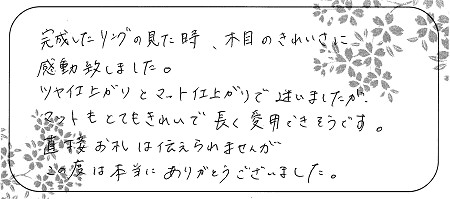 完成したリングの見た時、木目のきれいさに
感動致しました。
ツヤ仕上がりとマット仕上がりで迷いましたが、
マットもとてもきれいで長く愛用できそうです。
直接お礼は伝えられませんが
この度は本当にありがとうございました。